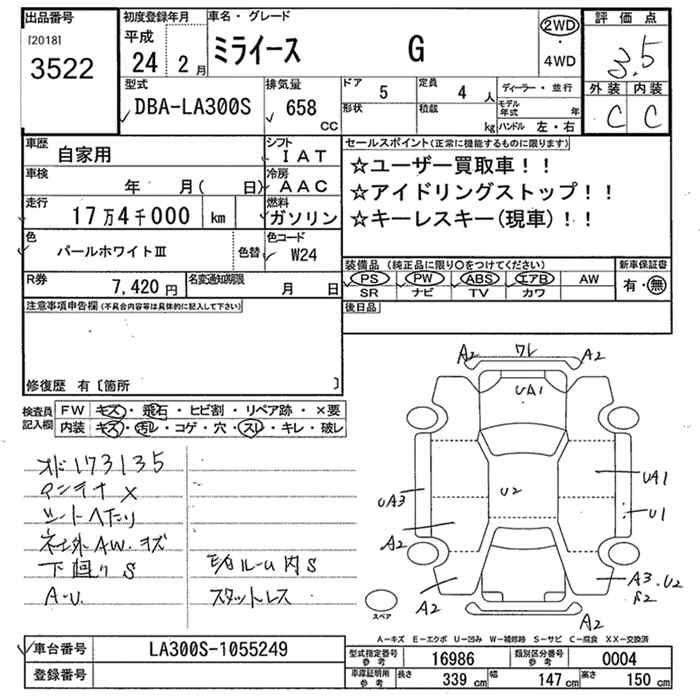 出品番号
[2018]
3522
初度登録年月
平成
24 2 月
車名・グレード
ミライース G
2WD
・
4WD
評価点
3.5
外装 内装
C C
型式
DBA-LA300S
排気量
658
CC
ドア 5
形状
定員 4 人
積載 kg
ディーラー・並行
モデル年式 年
ハンドル 左・右
車歴
自家用
シフト
IAT
車検
年 月( 日)
冷房
AAC
走行
17万4千000 km
燃料
ガソリン
色
パールホワイトⅢ
色替
色コード
W24
R券
7,420 円
名変通知期限
月 日
セールスポイント(正常に機能するものに限ります)
☆ユーザー買取車!!
☆アイドリングストップ!!
☆キーレスキー(現車)!!
装備品 (純正品に限り〇をつけてください)
PS PW ABS エアB AW
SR ナビ TV カワ
新車保証書
有・無
後日品
注意事項申告欄(不具合内容等は具体的に記入して下さい)
修復歴 有〔箇所 〕
検査員
記入欄
FW キズ・飛石・ヒビ割・リペア跡・×要
内装 キズ・汚レ・コゲ・穴・スレ・キレ・破レ
オド173135
アンテナ×
シートヘたり
社外AW.キズ
下廻りS
A-U.
E/Gルーム内S
スタットレス
A2 ワレ A2
UA1
UA3
U2
UA1
U1
A2
A2
A3.U2
S2
A2
A2
スペア
A―キズ E―エクボ U―凹み W―補修跡 S―サビ C―腐食 XX―交換済
車台番号
LA300S-1055249
登録番号
型式指定番号
参考
16986
類別区分番号
参考
0004
車庫証明用
参考
長さ 339 cm
幅 147 cm
高さ 150 cm